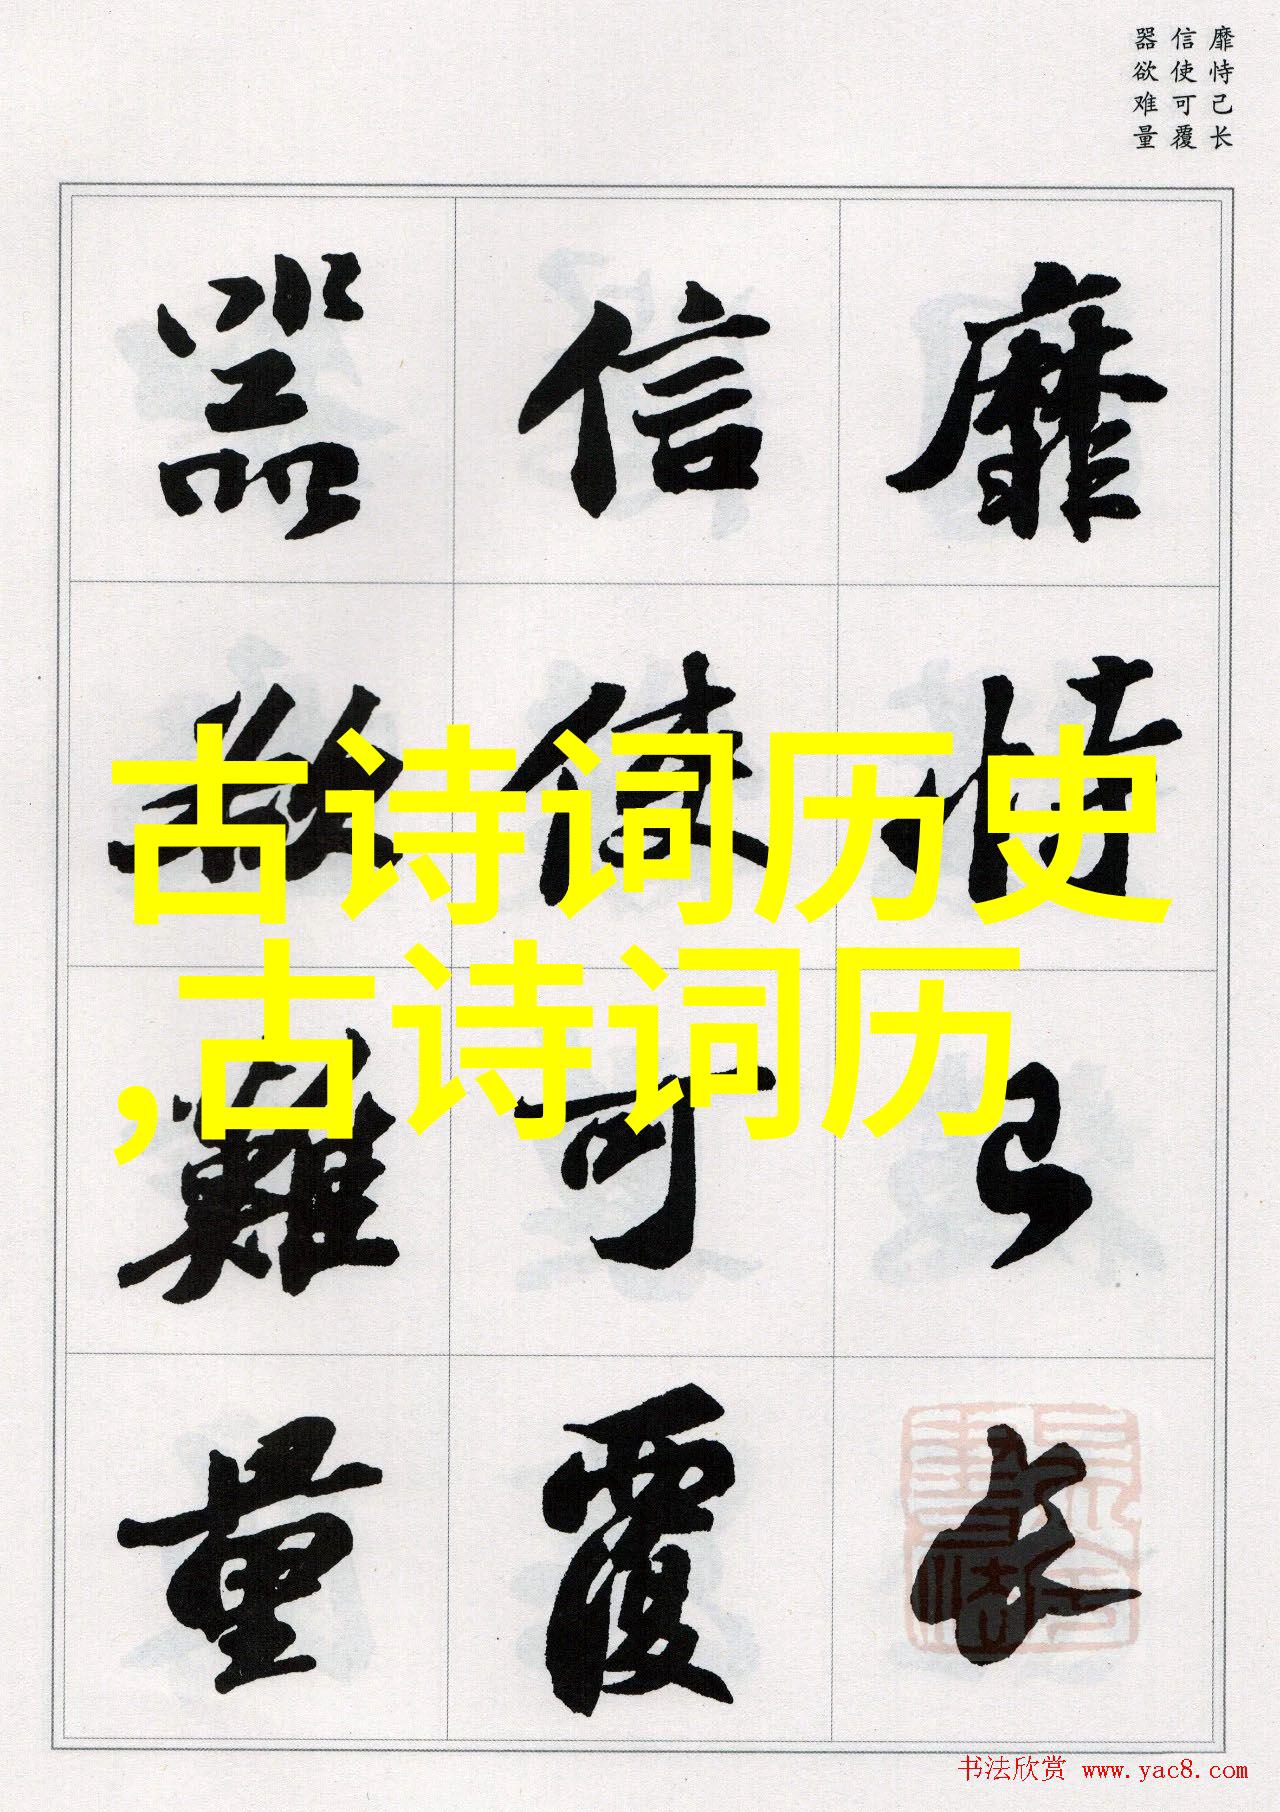 靡恃己长
信使可覆
器欲难量
靡恃己長
信使可覆
器欲難量
古诗词历史
,古诗词历
书法欣赏 www.yac8.com